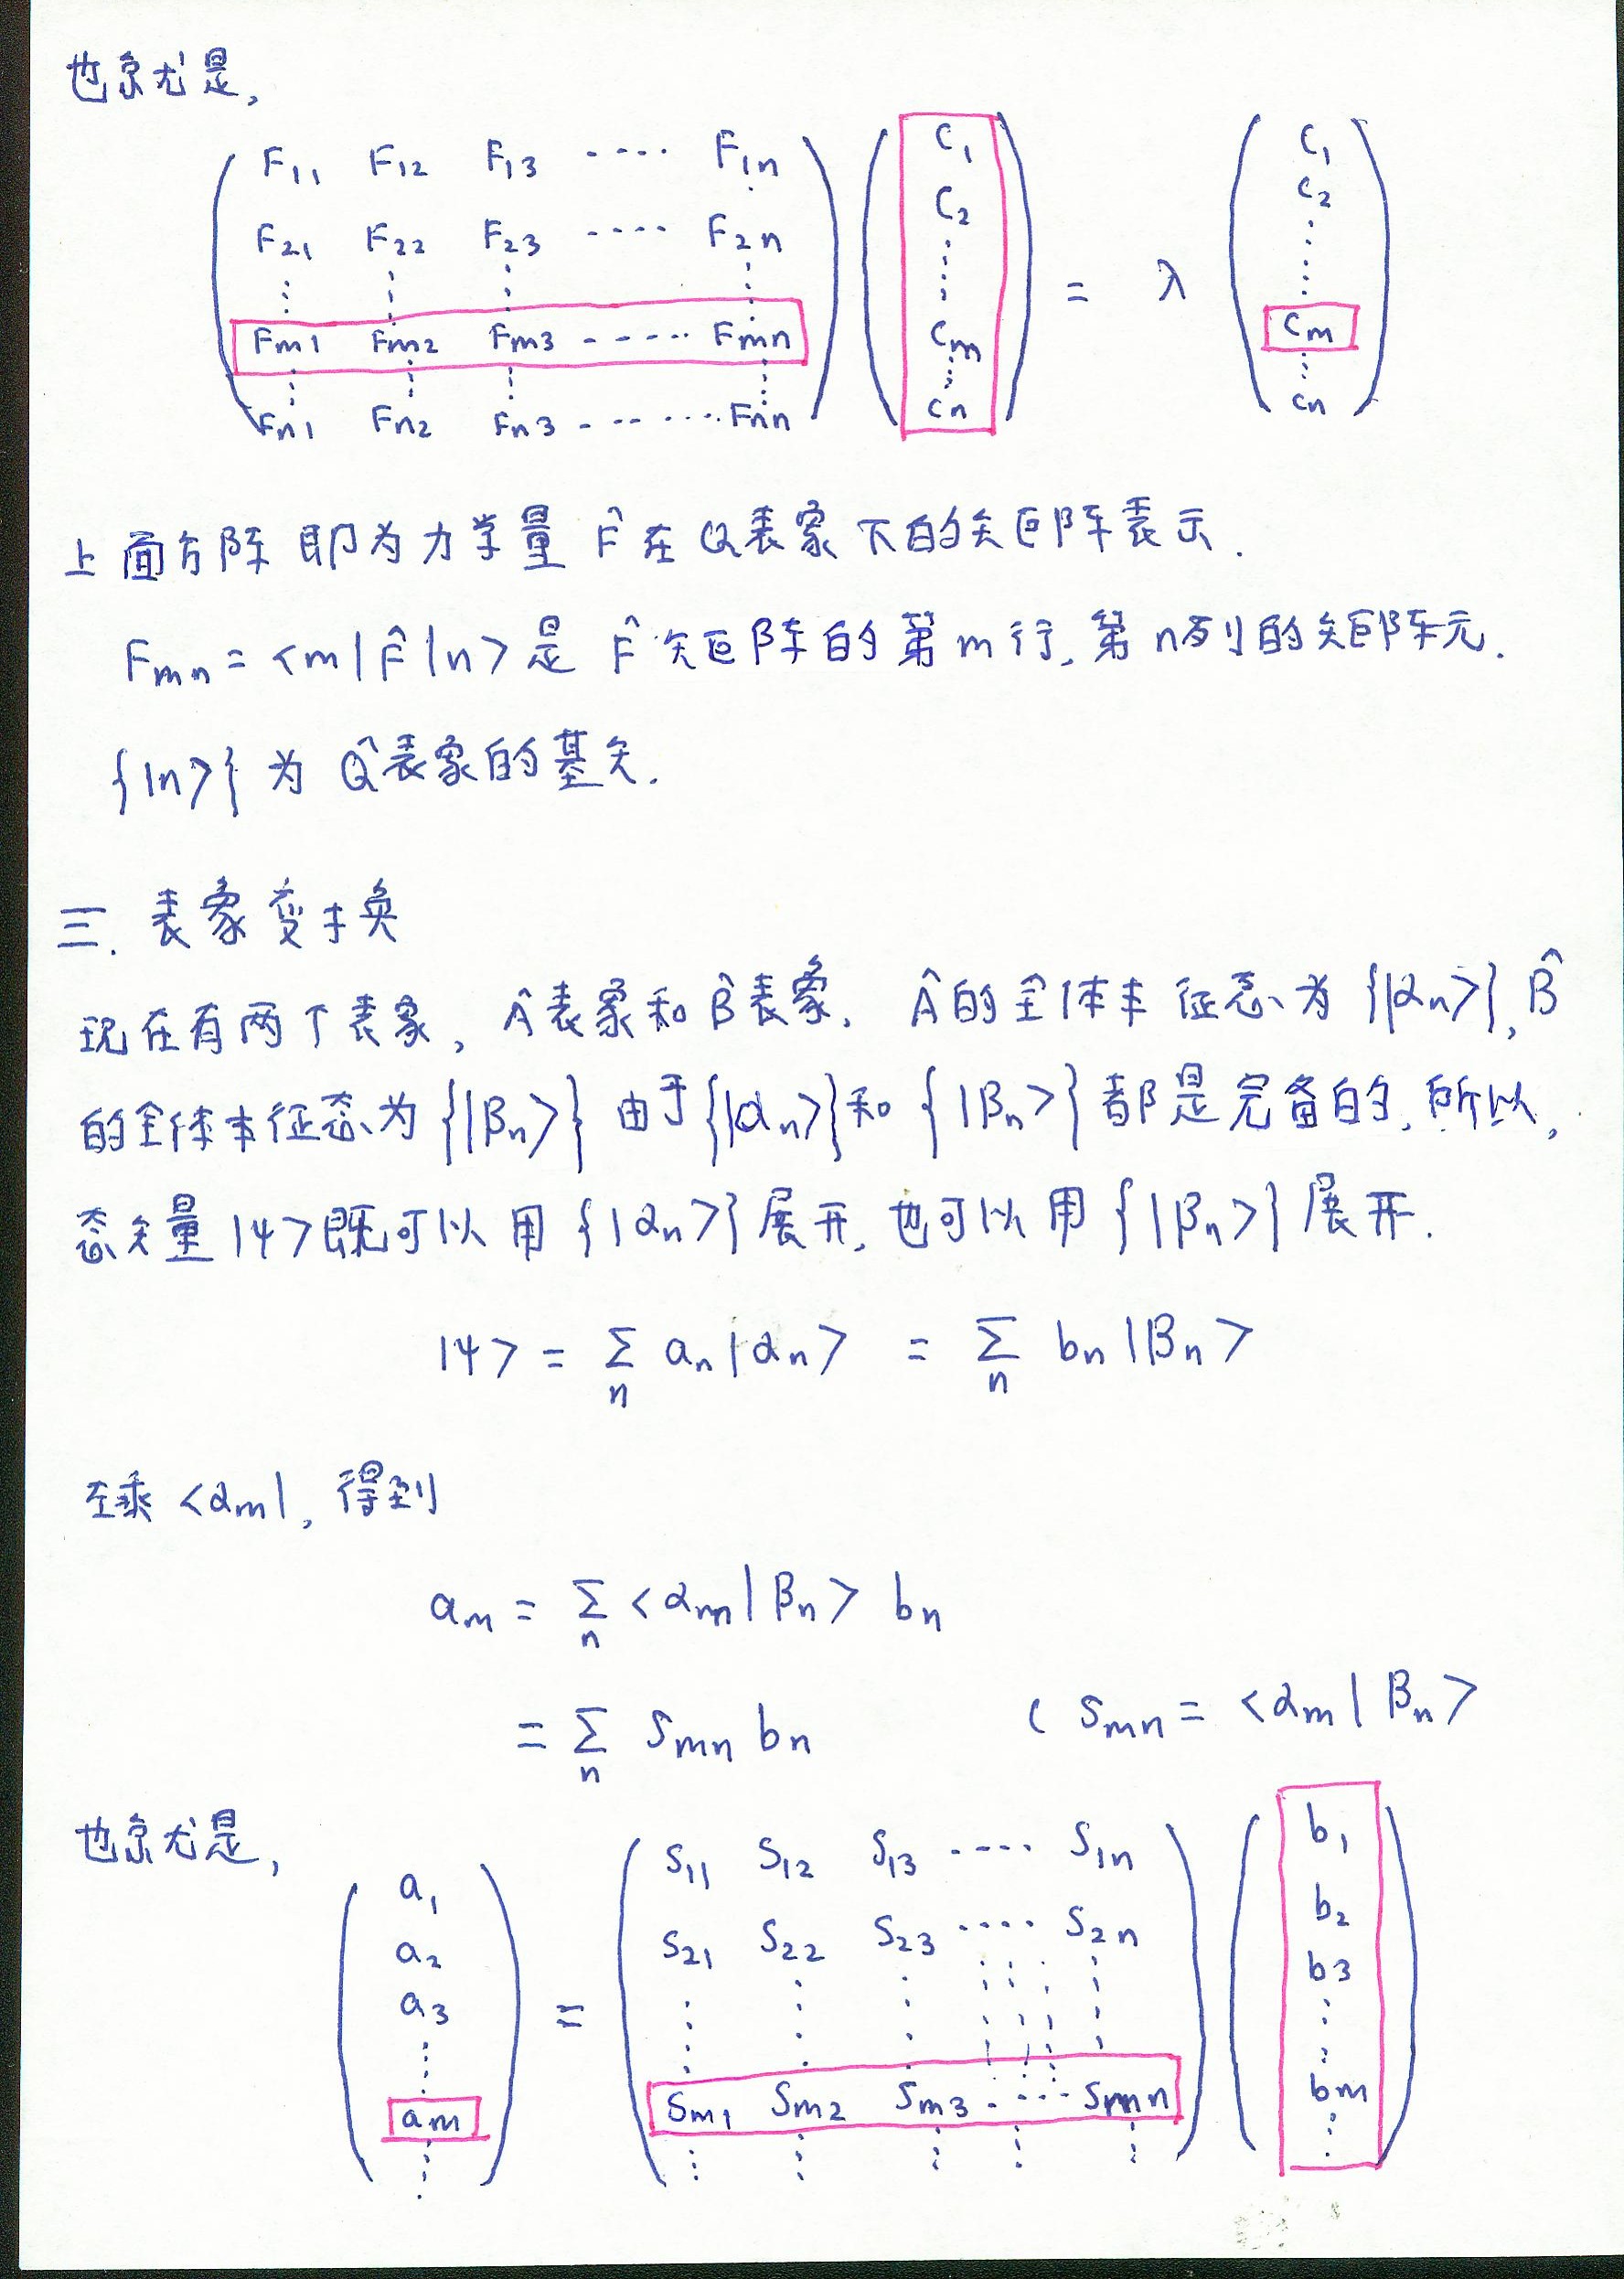 也就是,
F11 F12 F13 ---- F1n C1 C1
F21 F22 F23 ---- F2n C2 C2
Fm1 Fm2 Fm3 ----- Fmn Cm = λ Cm
Fn1 Fn2 Fn3 ------- Fnn Cn Cn
上面方阵即为力学量 F̂ 在 Q 表象下的矩阵表示.
Fmn = <m|F̂|n> 是 F̂ 矩阵的第 m 行, 第 n 列的矩阵元.
{|n>} 为 Q̂ 表象的基矢.
三. 表象变换
现在有两个表象, Â表象和B̂表象. Â的全体本征态为{|αn>}, B̂
的全体本征态为{|βn>} 由于{|αn>}和{|βn>}都是完备的, 所以,
态矢量|ψ>既可以用{|αn>}展开, 也可以用{|βn>}展开.
|ψ> = Σn an|αn> = Σn bn|βn>
左乘<αm|, 得到
am = Σn <αm|βn> bn
= Σn Smn bn ( Smn = <αm|βn>
也就是,
a1 S11 S12 S13 ---- S1n b1
a2 S21 S22 S23 ---- S2n b2
a3 = b3
am Sm1 Sm2 Sm3 ----- Smn bm